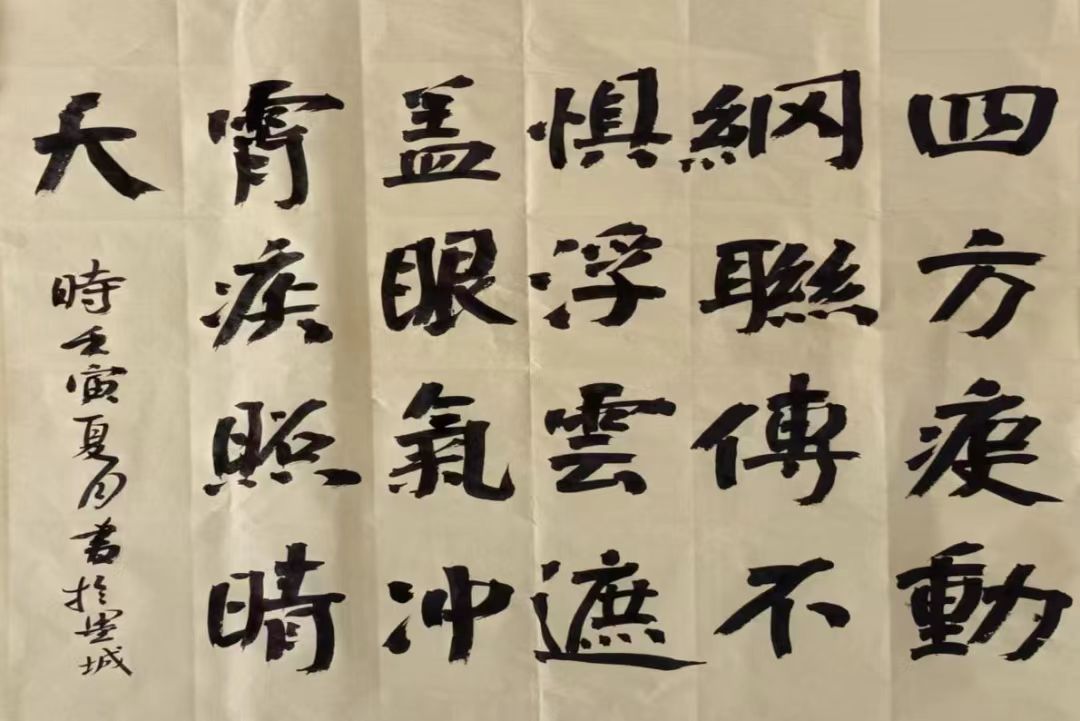 四方疫動
網聯傳不
惧浮雲遮
盖眼氣冲
霄疾照晴
天
時壬寅夏月書於城